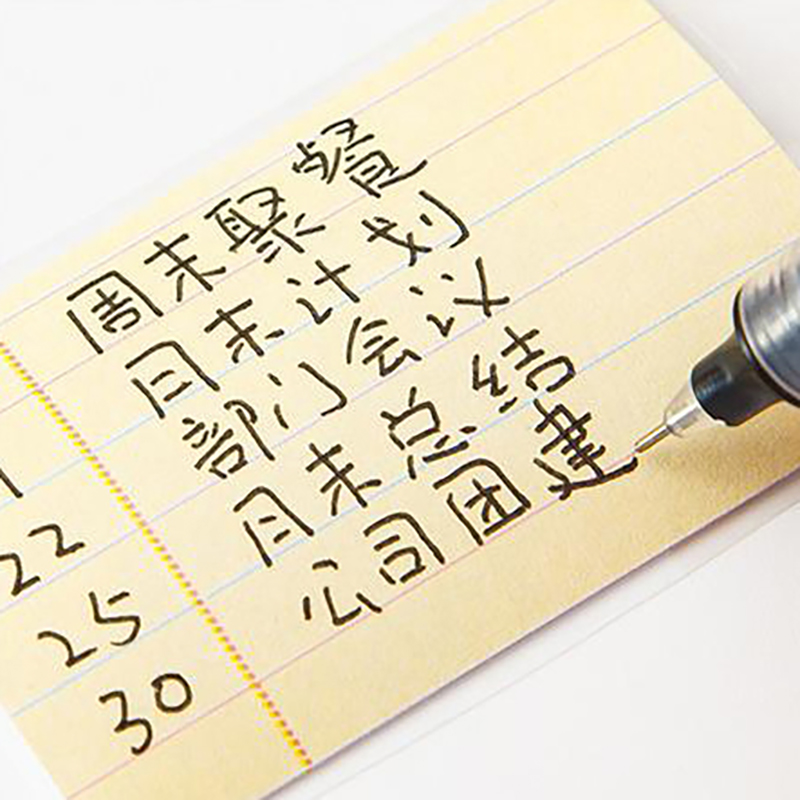 周末聚餐
月末计划
22 部门会议
25 月末总结
30 公司团建